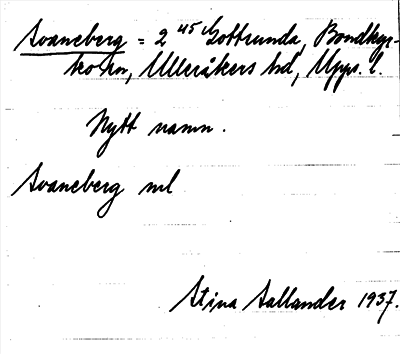 Svaneberg = 2 45 Gottsunda, Bondkyr-
ko sn, Ulleråkers hd, Upps. l.
Nytt namn.
Svaneberg ml
Stina Sallander 1937.